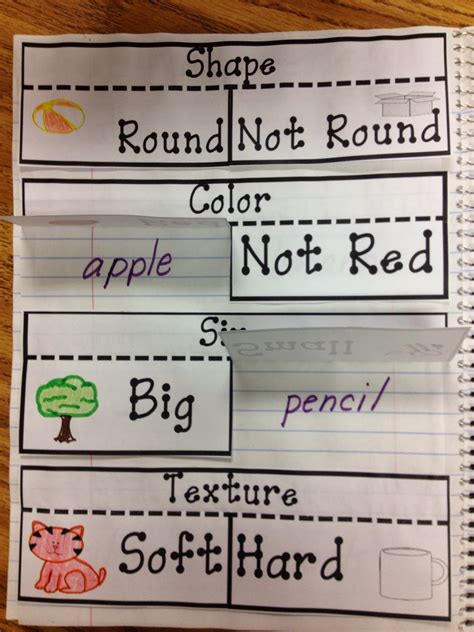 Shape
Round Not Round
Color
apple Not Red
Small
Big pencil
Texture
Soft Hard